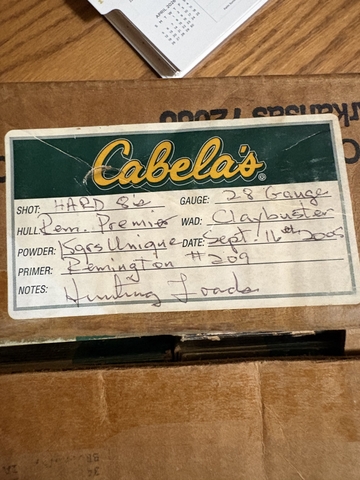 APRIL
rkansas 72
Cabela's®
SHOT: HARD 8's GAUGE: 28 Gauge
HULL: Rem. Premier WAD: Claybuster
POWDER: Unique DATE: Sept. 16th 2005
PRIMER: Remington #209
NOTES: Hunting Loads